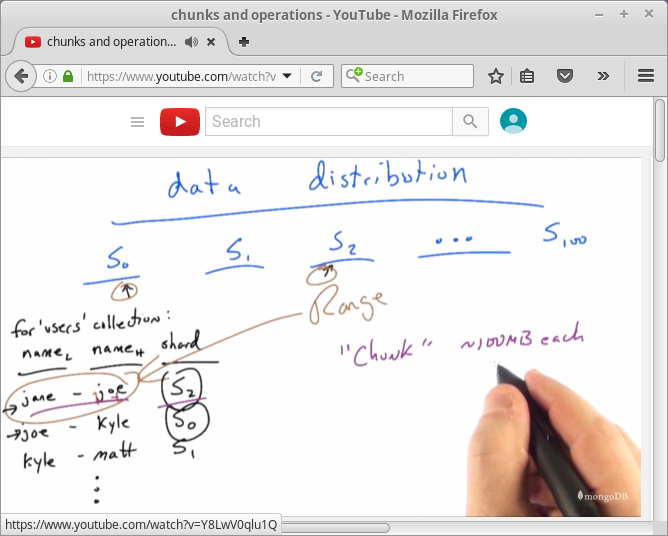 chunks and operations - YouTube - Mozilla Firefox
chunks and operation...
https://www.youtube.com/watch?v
Search
Search
data distribution
S0 S1 S2 ... S100
Range
for 'users' collection:
nameL nameH shard
"Chunk" ~100MB each
jane - joe S2
joe - Kyle S0
Kyle - matt S1
mongoDB
https://www.youtube.com/watch?v=Y8LwV0qlu1Q